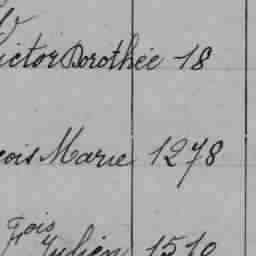 Victor Dorothée 18
çois Marie 1278
Fois Julien 1510